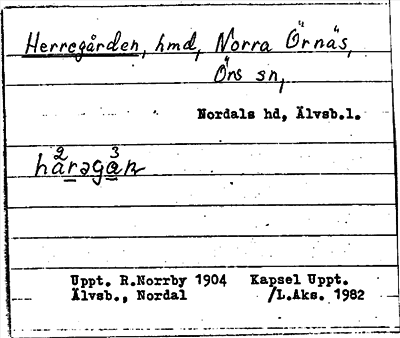 Herregården, hmd, Norra Örnäs,
Örs sn,
Nordals hd, Älvsb.l.
Uppt. R.Norrby 1904 Kapsel Uppt.
Älvsb., Nordal /L.Aks. 1982